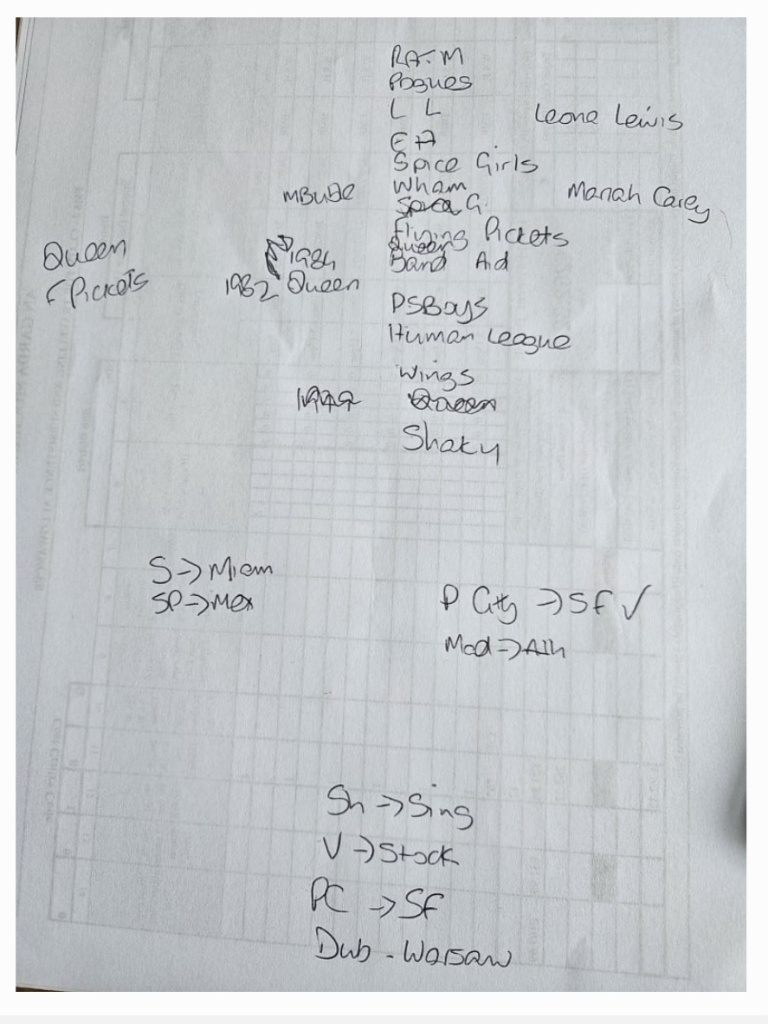 RATM
Pogues
L L Leone Lewis
Spice Girls
MBube Wham Mariah Carey
G.
Flying Pickets
Queen 1984 Queen
Band Aid
F Pickets 1982 Queen
PSBoys
Human League
Wings
Queen
Shaky
S → Miam
SP → Mex
P City → SF ✓
Mad → Ath
Sh → Sing
V → Stock
PC → SF
Dub - Warsaw